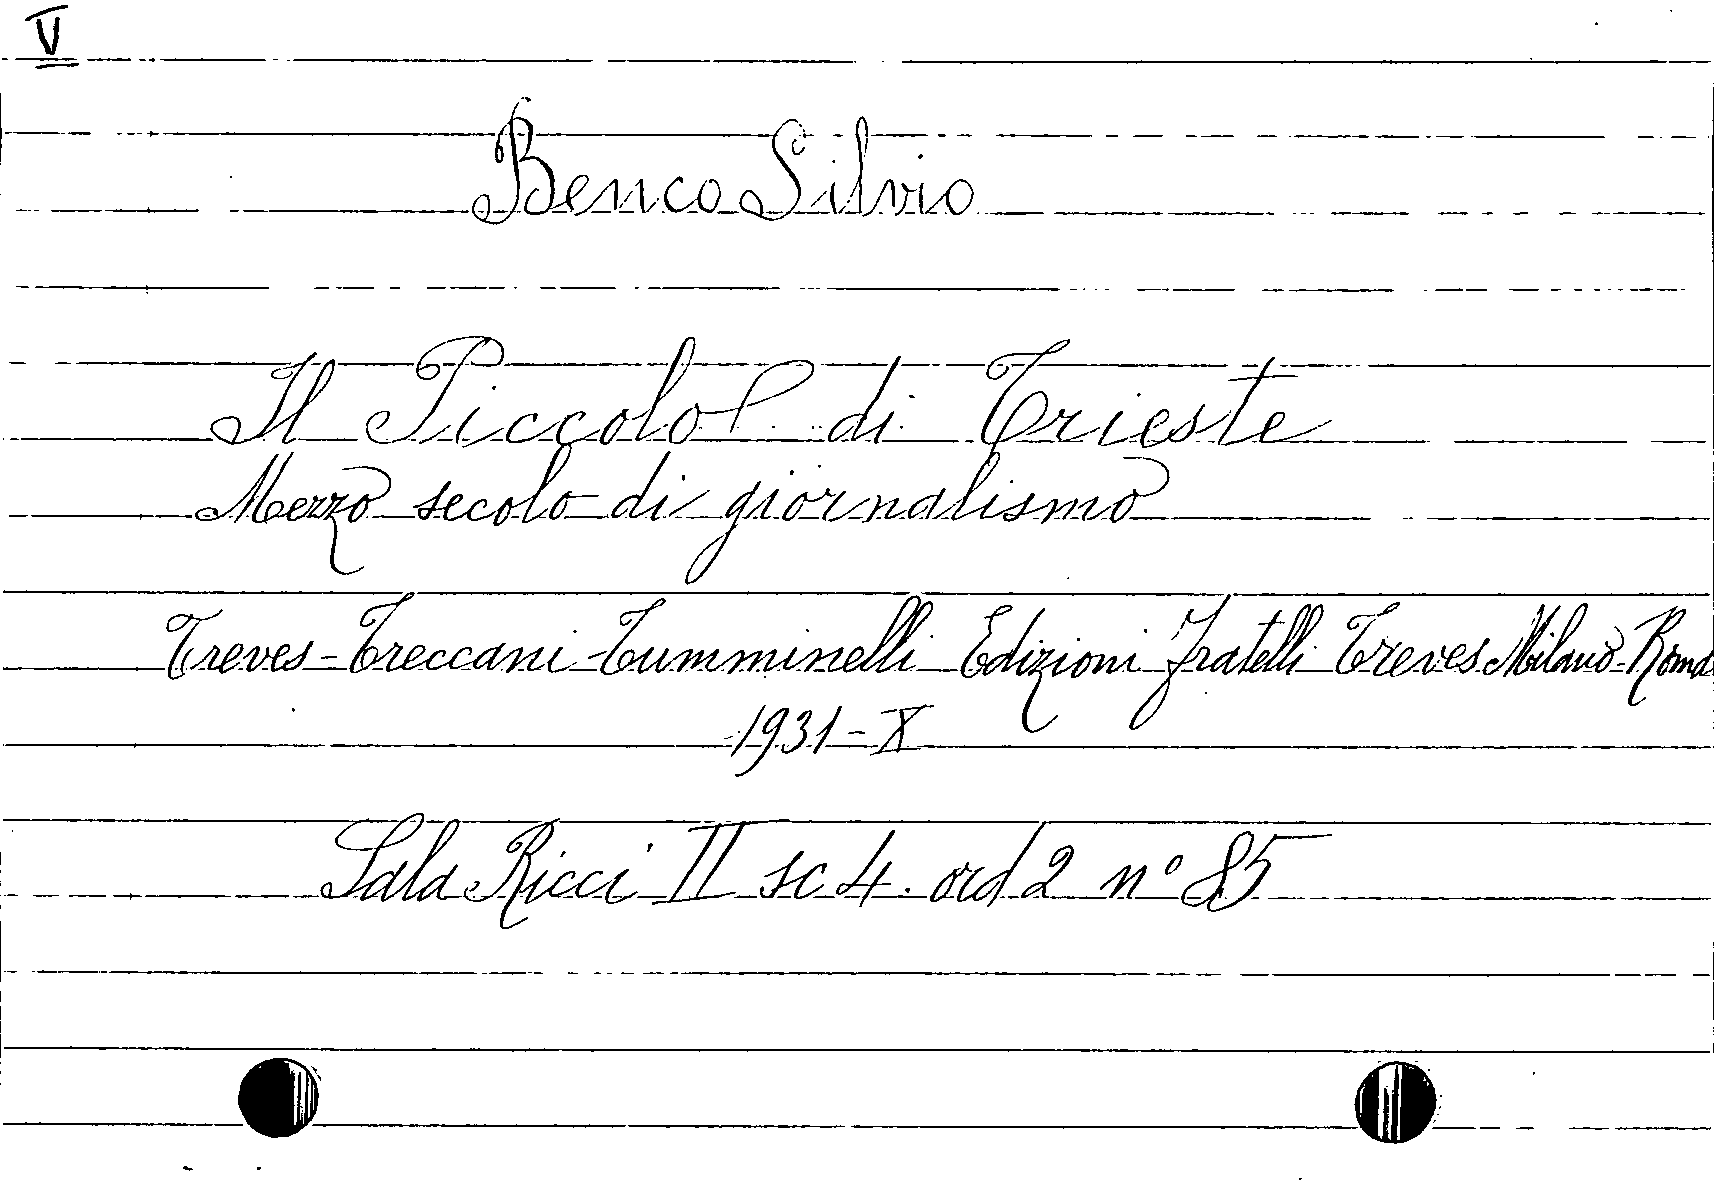 V
Benco Silvio
Il Piccolo di Trieste
Mezzo secolo di giornalismo
Treves-Treccani-Tumminelli Edizioni Fratelli Treves Milano-Roma
1931-X
Sala Ricci II sc 4. ord 2 n° 85